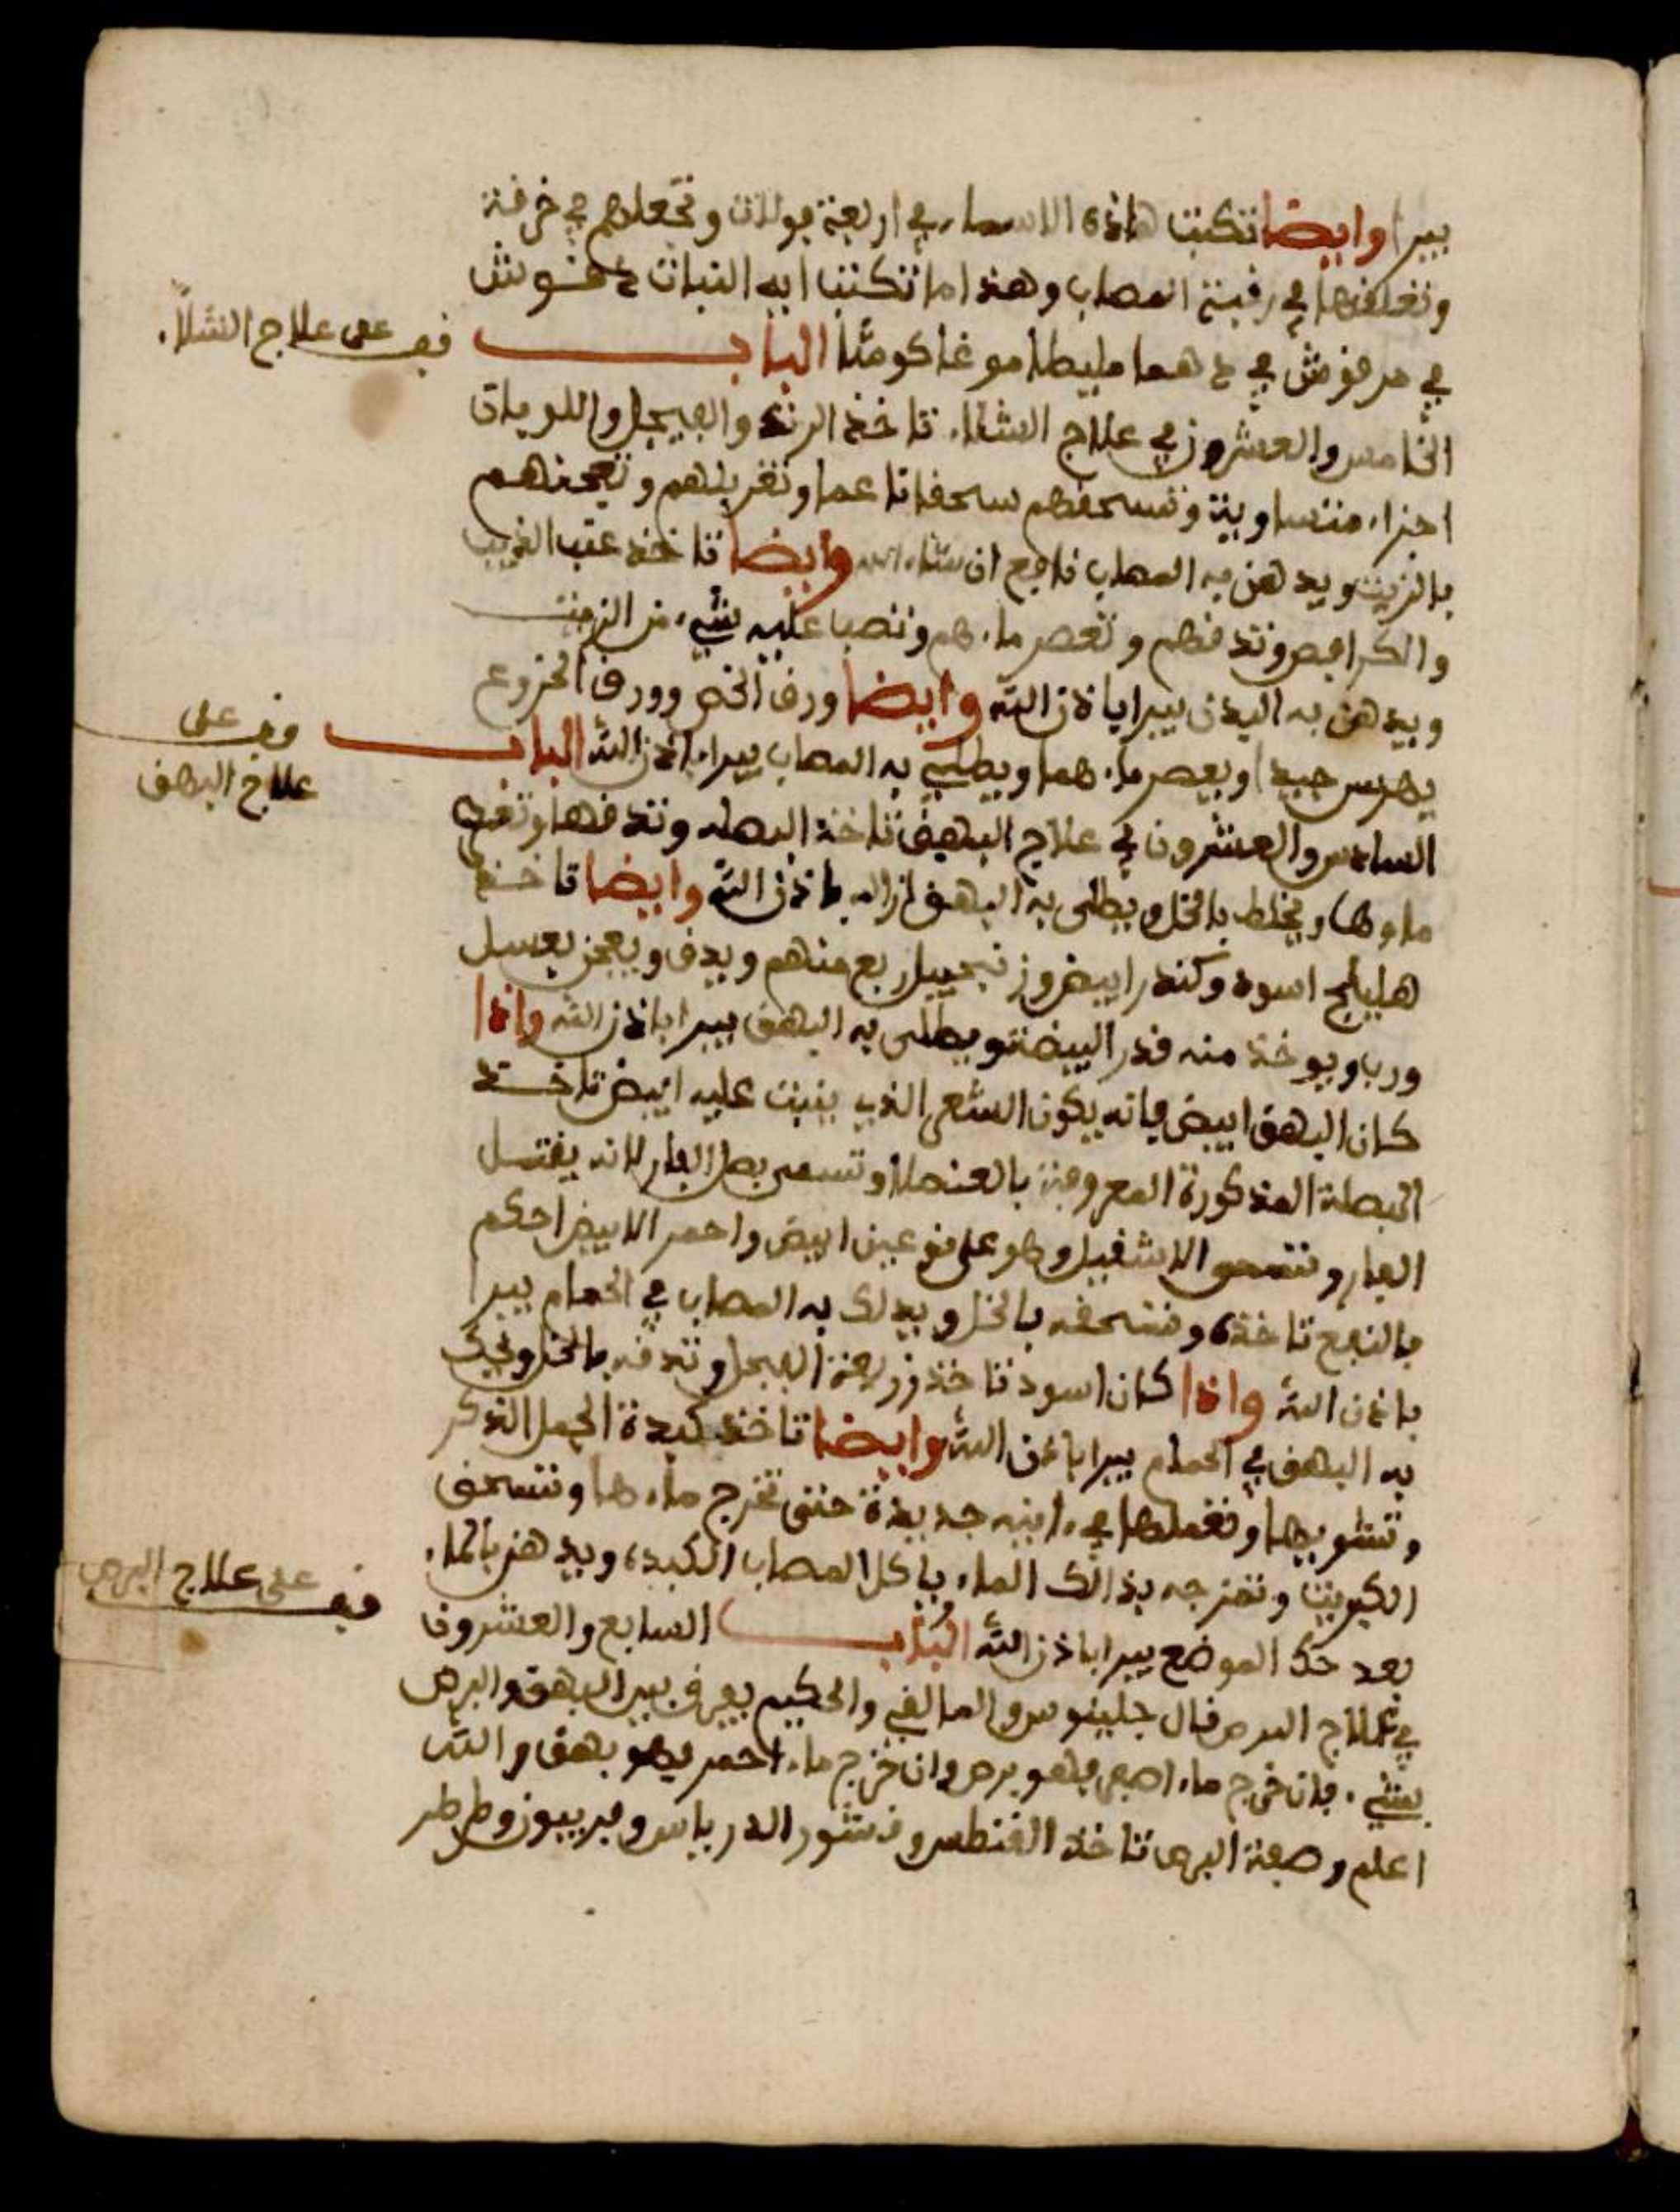 يبرا وايضا تكتب هاذه الاسماء في اربعة بولات وتجعلهم في خرفة
وتعلقها في رقبة المصاب وهذا ما تكتب ايه النبات د هشوش
في مرقوش في د هما مليطا موغا كومثا الباب
قف على علاج الشلل
الخامس والعشرون في علاج الشلل تاخذ الرند والفيجل واللويات
اجزاء متساوية وتسحقهم سحقا ناعما وتغربلهم وتعجنهم
بالزيت ويدهن به المصاب نافع ان شاء الله وايضا تاخذ عنب الذيب
والكرافص وتدقهم وتعصر ماءهم وتصب عليه شيء من الزيت
ويدهن به البدن يبرا باذن الله وايضا ورق الخص وورق الخروع
يهرس جيدا ويعصر ماءهما ويطلى به المصاب يبرا باذن الله الباب
قف على
علاج البهق
السادس والعشرون في علاج البهق تاخذ البصله وتدقها وتعصر
ماوها ويخلط بالخل ويطلى به البهق ازاله باذن الله وايضا تاخذ
هليلج اسود وكندر ابيض وزنجبيل ربع منهم ويدق ويعجن بعسل
ورب ويوخذ منه قدر البيضة ويطلى به البهق يبرا باذن الله واذا
كان البهق ابيض فانه يكون الشعر الذي ينبت عليه ابيض تاخذ
البصلة المذكورة المعروفة بالعنصلة وتسمى بصل الفار لانه يقتل
الفار وتسمى الاشقيل وهو على نوعين ابيض واحمر الابيض احكم
بالنفع تاخذه وتسحقه بالخل ويدلك به المصاب في الحمام يبرا
باذن الله واذا كان اسود تاخذ زريعة الفجل وتدقه بالخل ويحك
به البهق في الحمام يبرا باذن الله وايضا تاخذ كبدة الجمل الذكر
وتشويها وتغملها في ءانيه جديدة حتى تخرج ماءها وتسحق
الكبريت وتمزجه بذالك الماء ياكل المصاب الكبدة ويدهن بالماء
بعد حك الموضع يبرا باذن الله الباب السابع والعشرون
قف على علاج البرص
في علاج البرص قال جلينوس والمالقي والحكيم يعرف بين البهق والبرص
بشيء فان خرج ماء اصفر فهو برص وان خرج ماء احمر فهو بهق والله
اعلم وصفة البرص تاخذ القنطس وقشور الدرياس وفربيون وطرطر